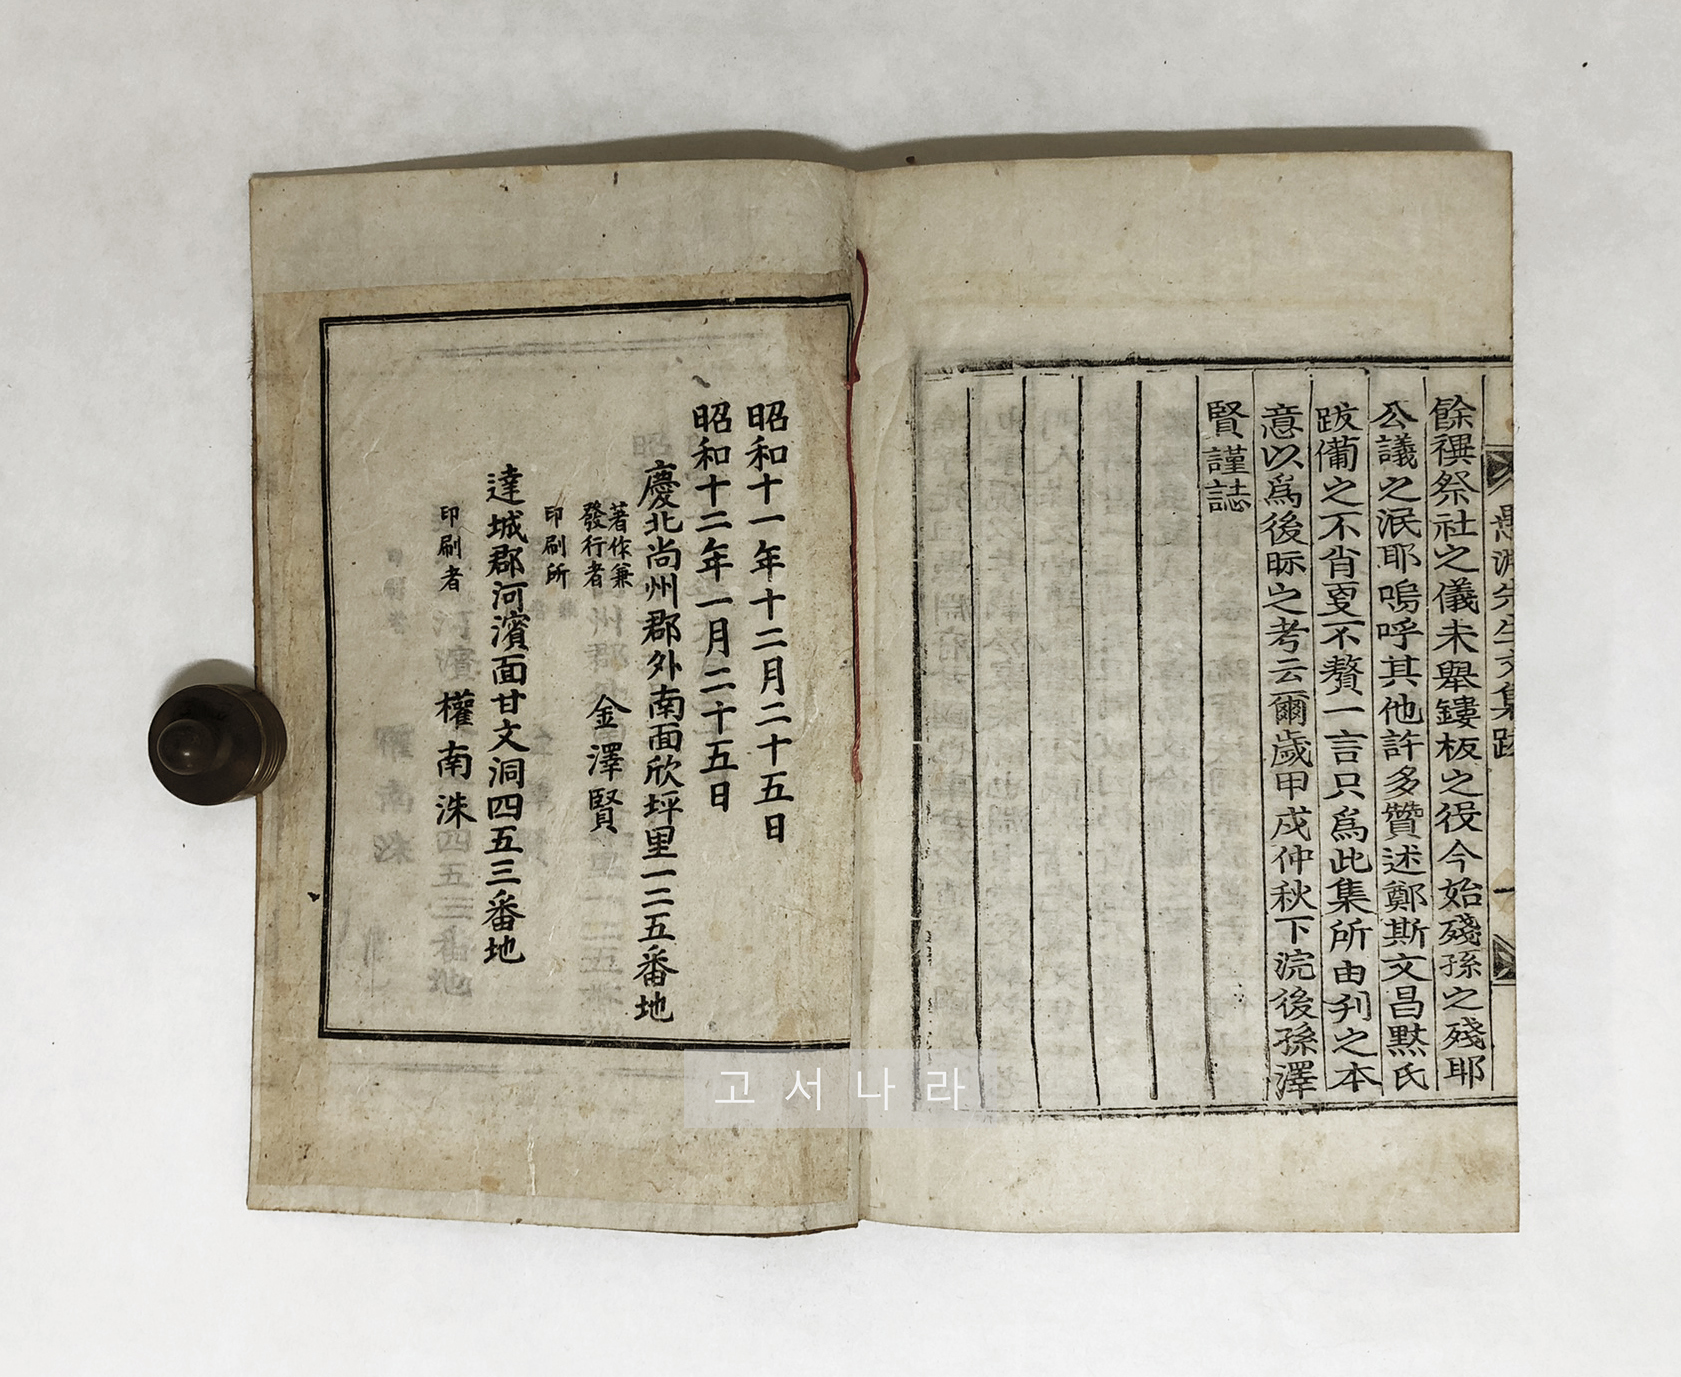 先生文集跋
餘禩祭社之儀未舉鏤板之役今始殘孫之殘耶
公議之泯耶嗚呼其他許多贊述鄭斯文昌黙氏
跋備之不肖更不贅一言只爲此集所由刋之本
意以爲後眎之考云爾歲甲戌仲秋下浣後孫澤
賢謹誌
昭和十一年十二月二十五日
昭和十二年一月二十五日
慶北尚州郡外南面欣坪里一二五番地
著作兼
發行者 金澤賢
印刷所
達城郡河濱面甘文洞四五三番地
印刷者 權南洙
고서나라